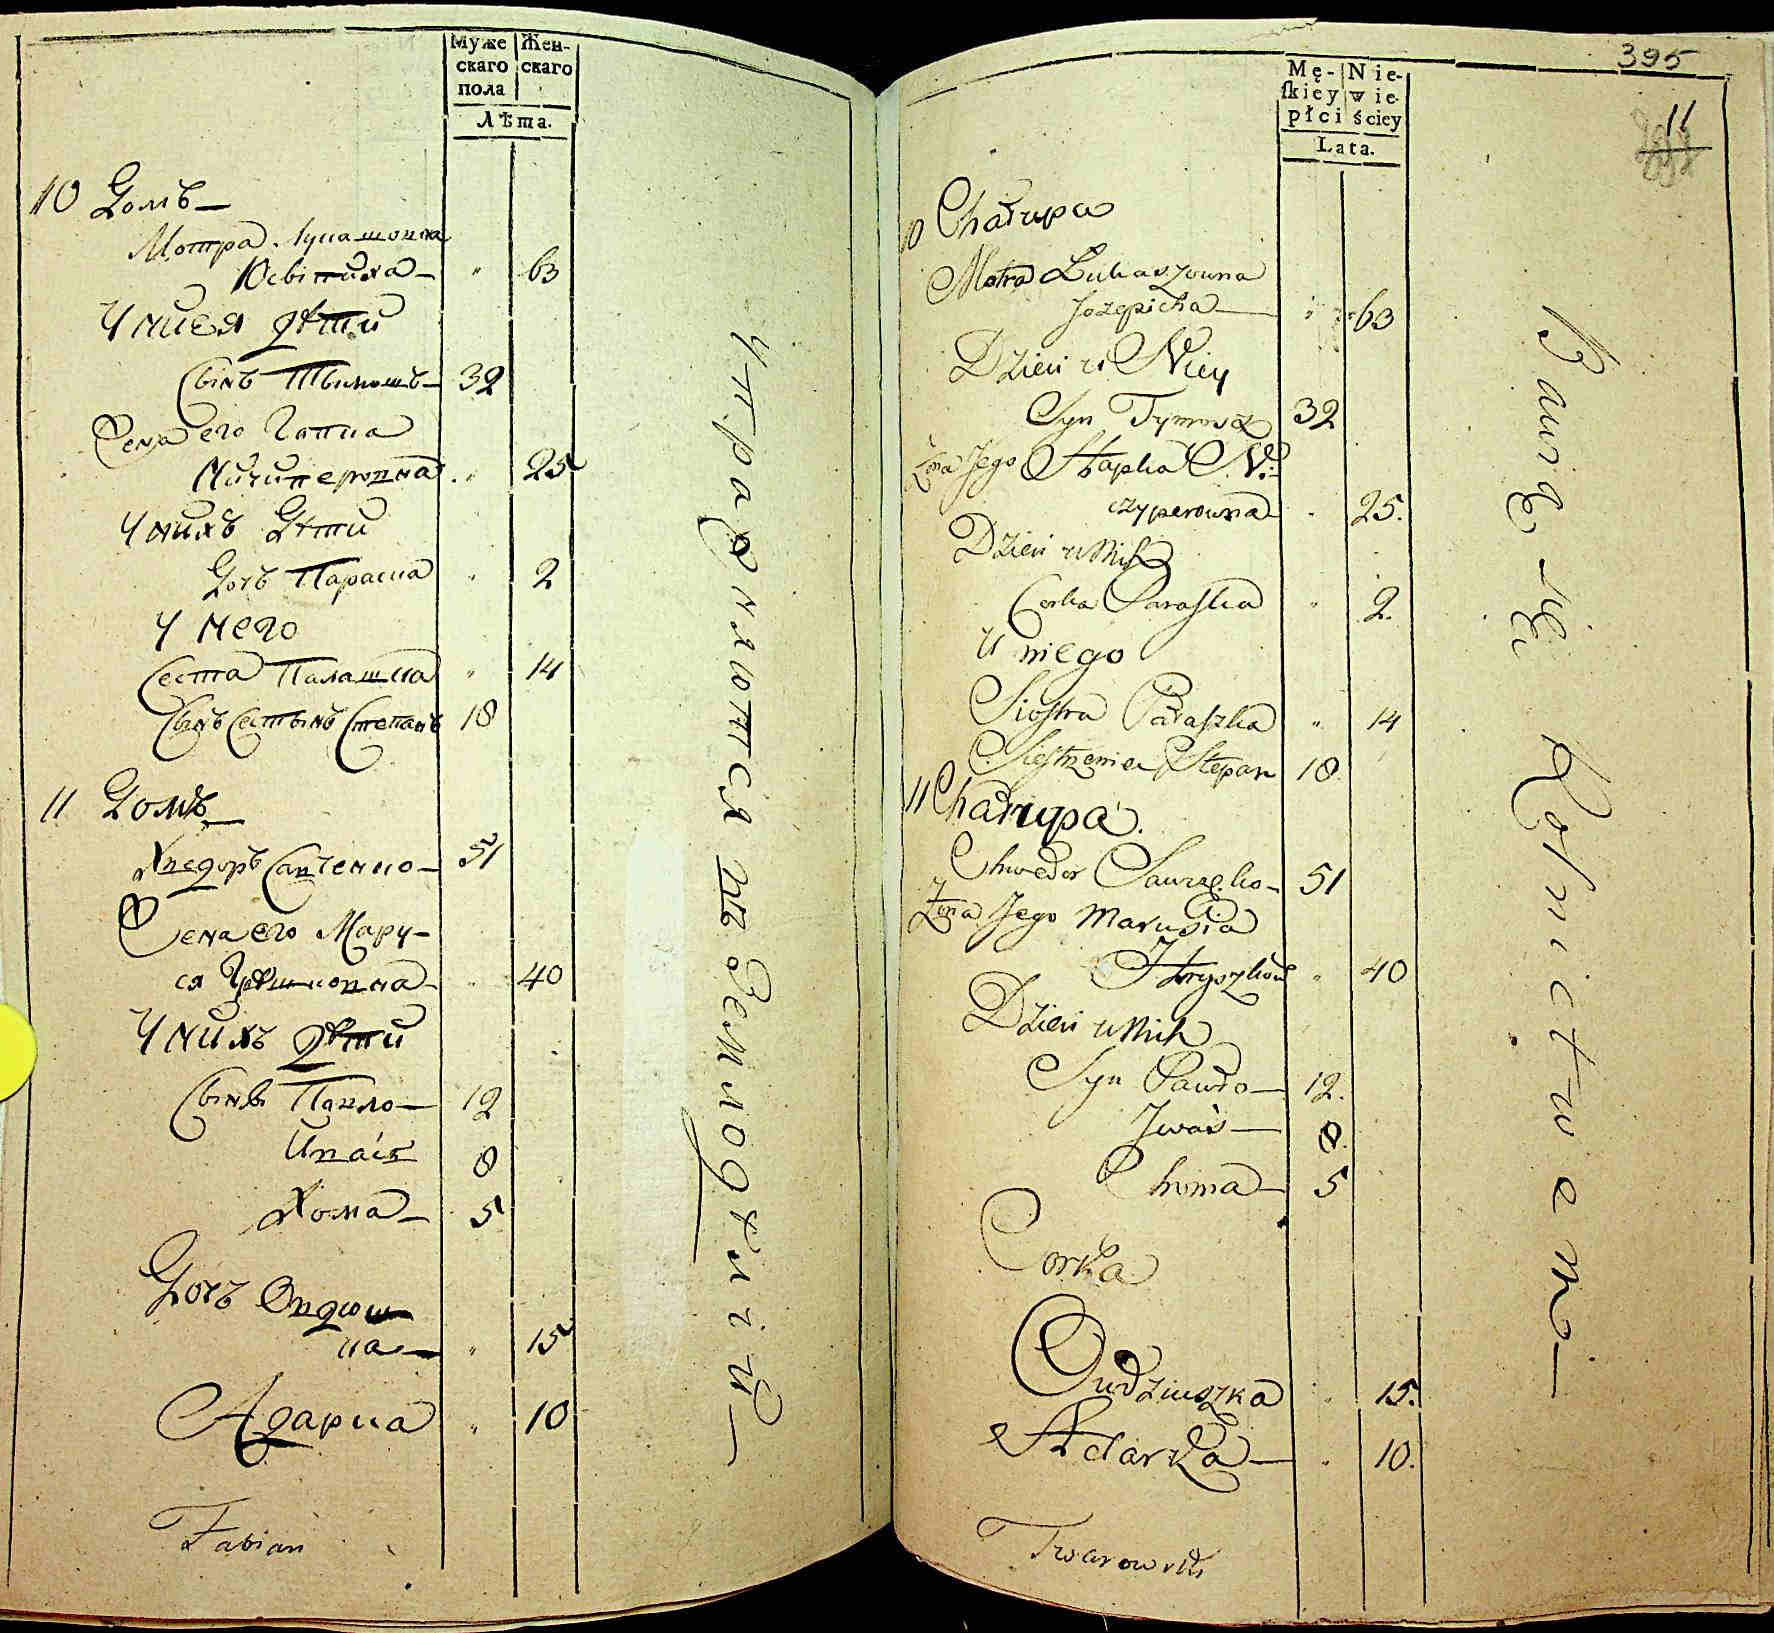 Муже
скаго
пола
Жен-
скаго
Лѣта.
10 Домъ—
Мотра Лукашовна
Юсвіпиха— " 63
У нися дѣти
Сынъ Тымошъ— 32
Жена его Гапка
Ничиперовна " 25
У нихъ Дѣти
Дочь Параска " 2
У него
Сестра Палашка " 14
Сынъ Сестынъ Степанъ 18
11 Домъ—
Хведоръ Савченко— 51
Жена его Мару-
ся Грышковна— " 40
У нихъ дѣти
Сынъ Павло— 12
Иваs 8
Хома— 5
Дочь Овдюш
ка— " 15
Адарка " 10
Fabian
Упражняются въ Земледѣлій—
395
11
Mę-
skiey
płci
Nie-
wie-
ściey
Lata.
10 Chałupa
Motra Łukaszowna
Jozepicha— " 63
Dzieci u Niey
Syn Tymosz 32
Żona Jego Hapka Ni-
czyperowna " 25.
Dzieci u Nich
Corka Paraska " 2.
U niego
Siostra Paraszka " 14
Siestrzeniec Stepan 18
11 Chałupa.
Chwedor Sawczęko— 51
Żona Jego Marusia
Hryszkow " 40
Dzieci u Nich
Syn Pawło— 12.
Jwaś— 8.
Choma— 5
Corka
Oudziuszka " 15.
Adarka— " 10.
Twarowski
Bawią się Rolnictwem—